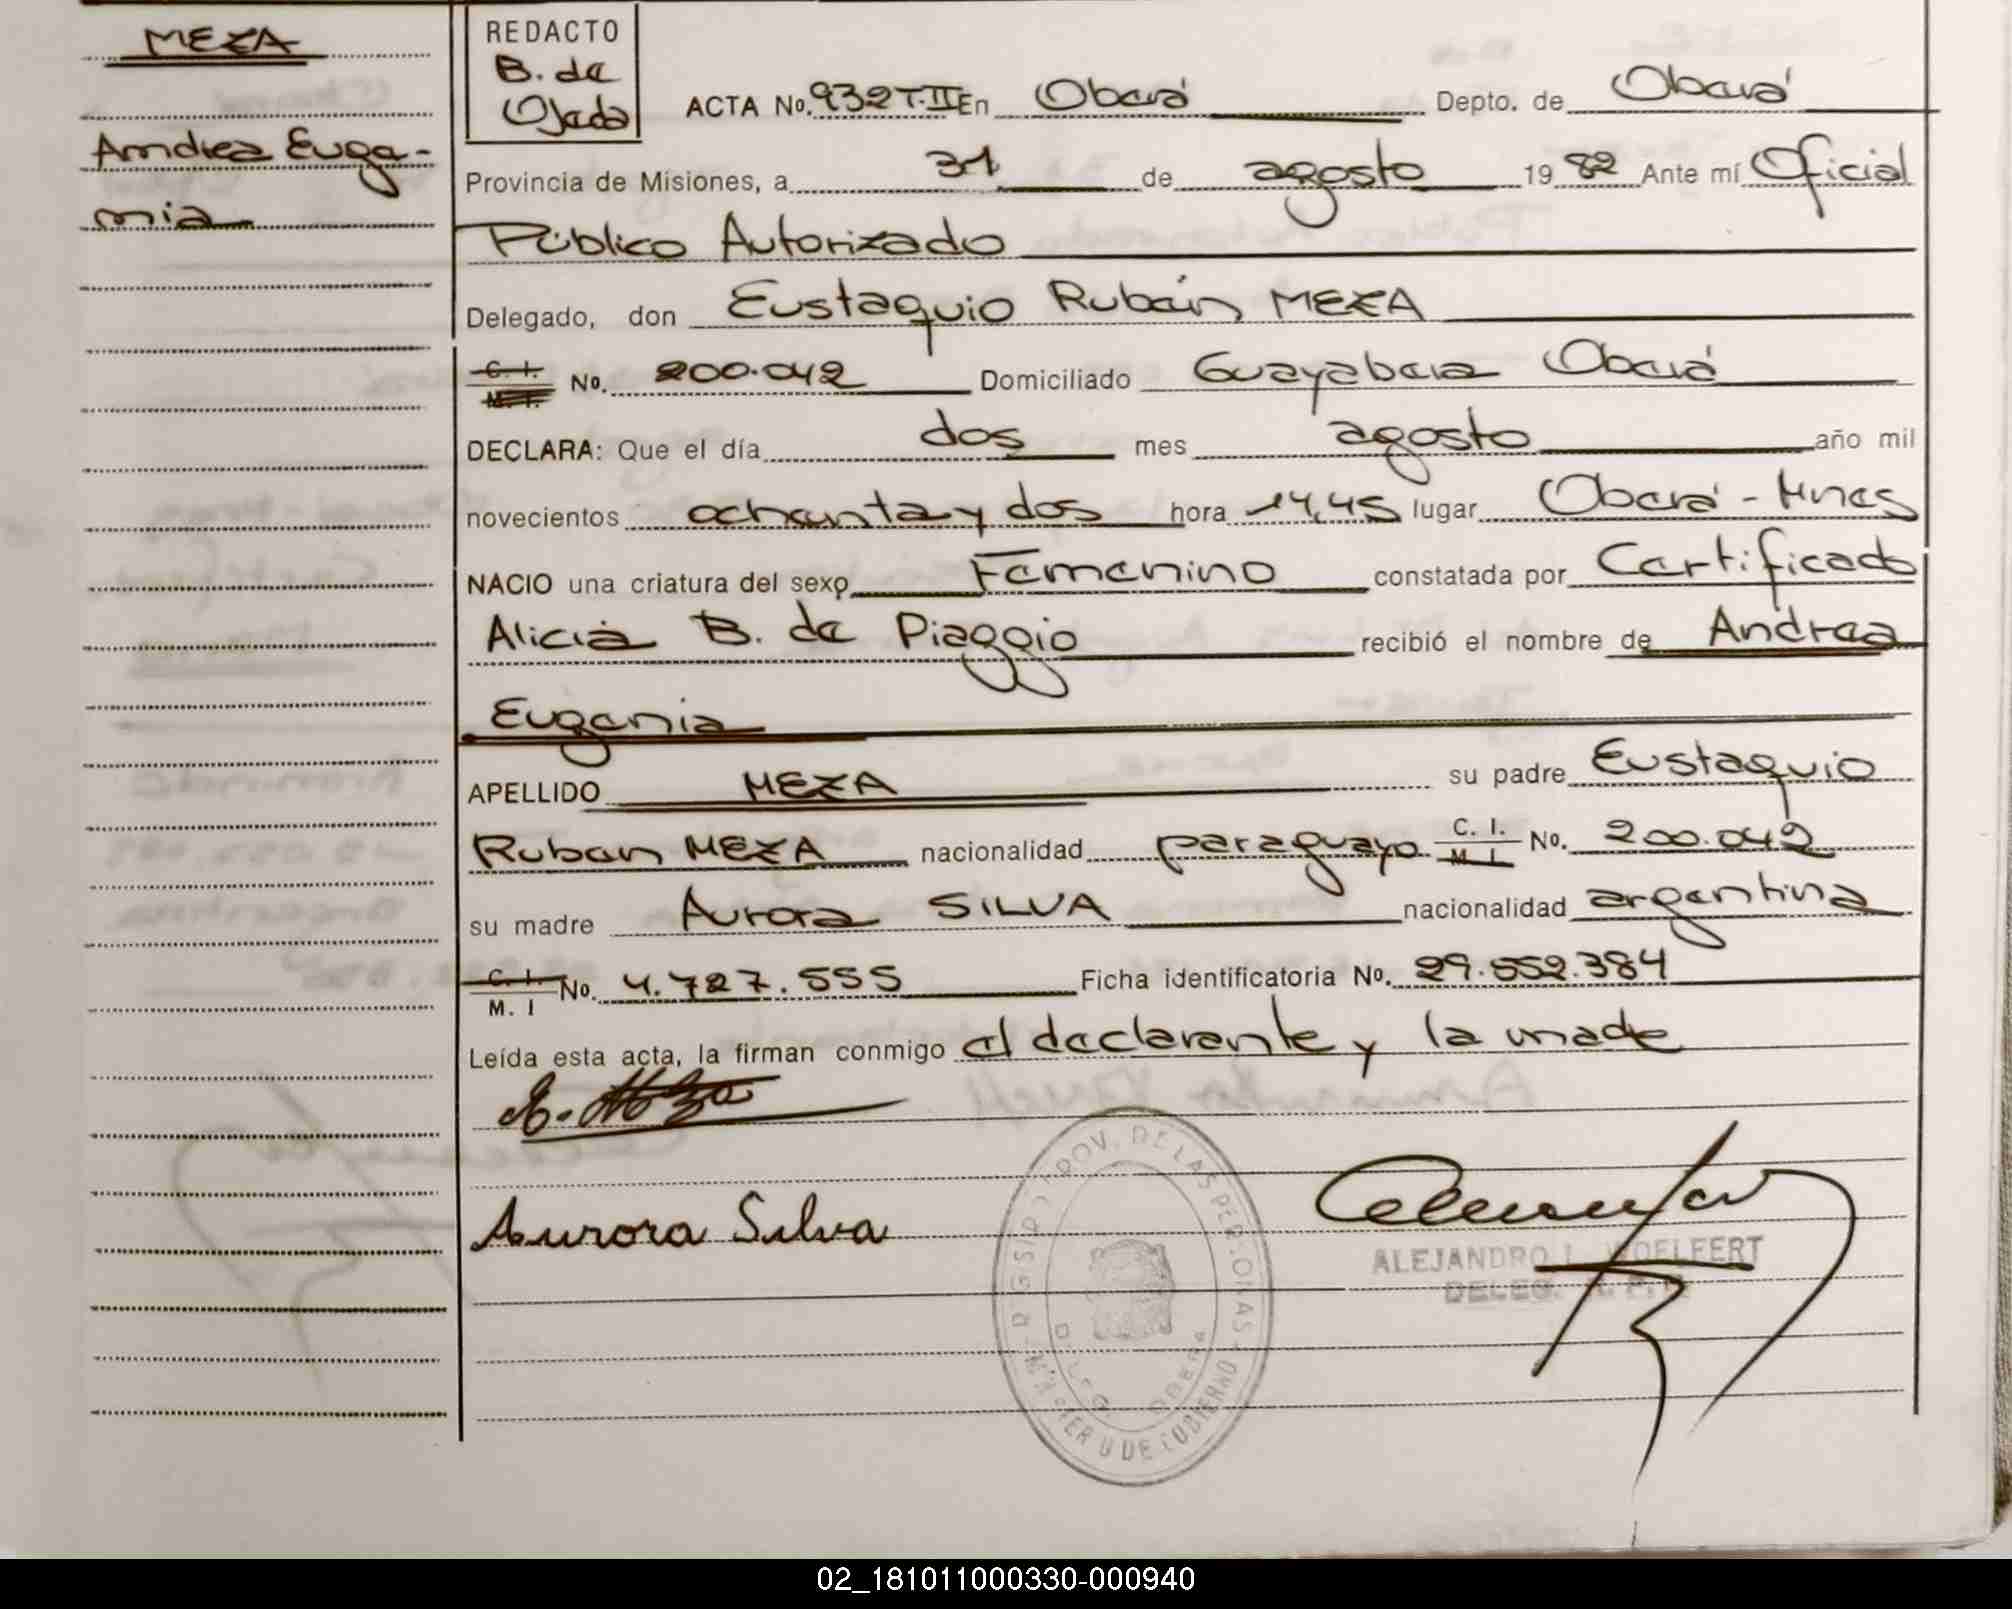 MEZA
Andrea Euge-
nia
REDACTO
B. de
Ojeda
ACTA No. 932 T.II En Oberá Depto. de Oberá
Provincia de Misiones, a 31 de agosto 19 82 Ante mí Oficial
Público Autorizado
Delegado, don Eustaquio Rubén MEZA
C. I. M. I. No. 200.042 Domiciliado Guayabera Oberá
DECLARA: Que el día dos mes agosto año mil
novecientos ochenta y dos hora 14,45 lugar Oberá - Mnes
NACIO una criatura del sexo Femenino constatada por Certificado
Alicia B. de Piaggio recibió el nombre de Andrea
Eugenia
APELLIDO MEZA su padre Eustaquio
Ruben MEZA nacionalidad paraguayo C. I. M I. No. 200.042
su madre Aurora SILVA nacionalidad argentina
C. I. M. I No. 4.727.555 Ficha identificatoria No. 29.552.384
Leída esta acta, la firman conmigo el declarante y la made
E. Meza
Aurora Silva
PROV. DE LAS PERSONAS
DELEG. OBERA
DE GOBIERNO
ALEJANDRO L. WOELFERT
DELEG.
02_181011000330-000940